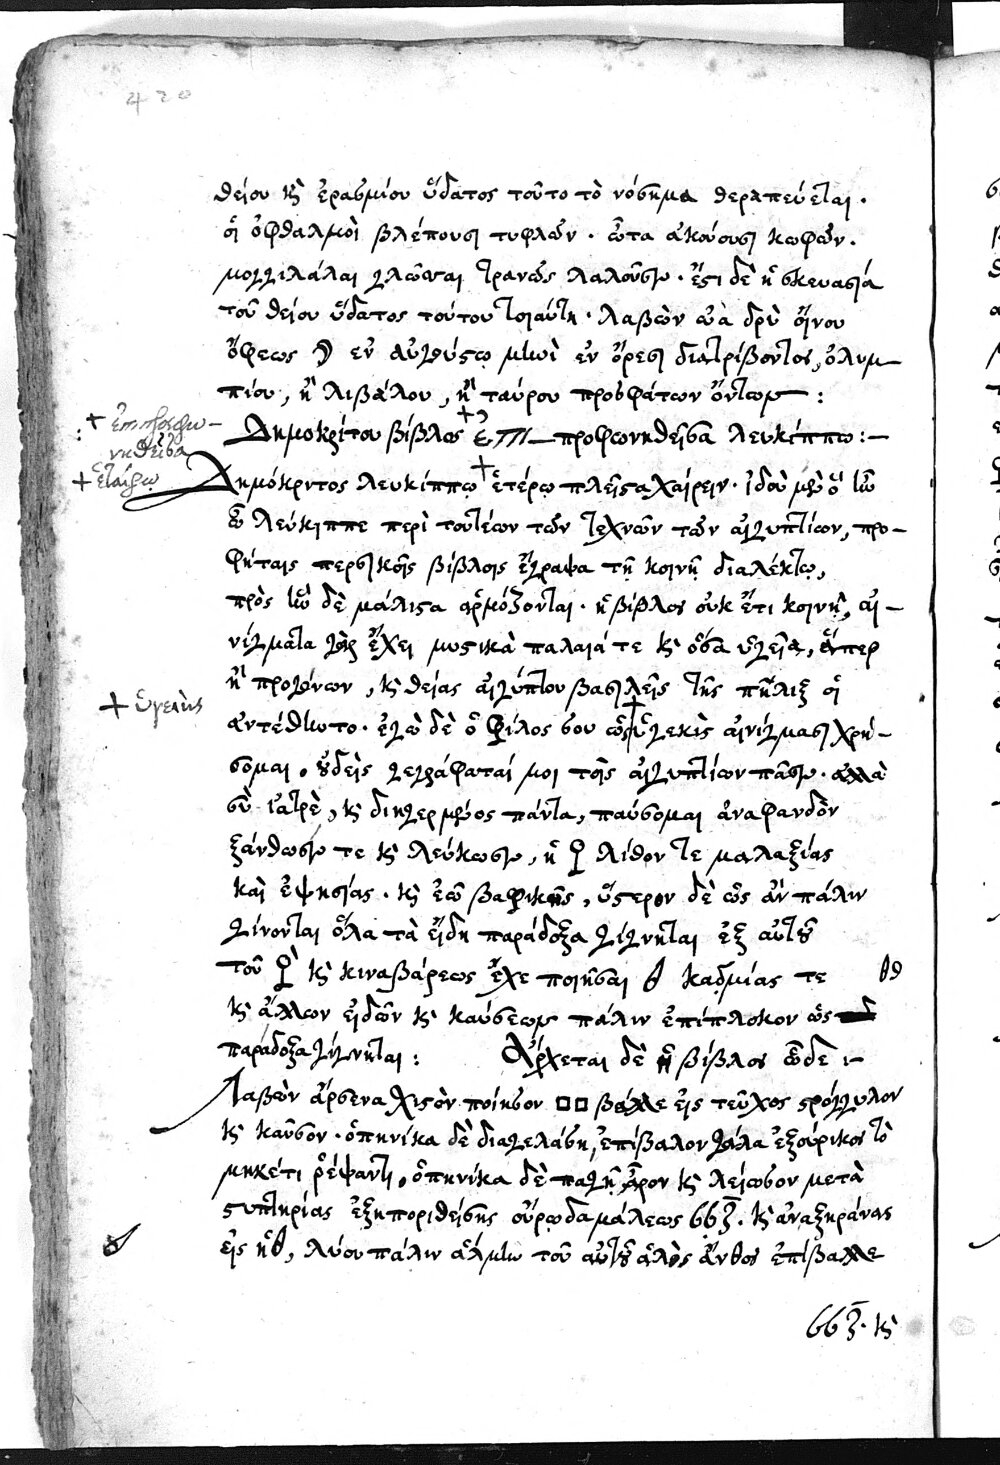 420
θείου κ̀ ἐρασμίου ὕδατος τοῦτο τὸ νόσημα θεραπεύεται.
οἱ ὀφθαλμοὶ βλέπουσι τυφλῶν. ὦτα ἀκούουσι κωφῶν.
μογγιλάλαι γλῶσσαι τρανῶς λαλοῦσιν. ἔστι δὲ ἡ σκευασία
τοῦ θείου ὕδατος τούτου τοιαύτη. λαβὼν ὠὰ δρυΐνου
ὄφεως ἐν αὐγούστῳ μηνὶ ἐν ὄρεσι διατρίβοντος, ὀλυμ-
πίου, ἢ λιβάνου, ἢ ταύρου προσφάτων ὄντων :
+ ἐπιπροσφω-
νηθεῖσα
Δημοκρίτου βίβλος ε προσφωνηθεῖσα λευκίππω :-
+ ἑταίρῳ
Δημόκριτος λευκίππῳ ἑτέρῳ πλεῖστα χαίρειν. ἰδοὺ μὲν ὃ ἦν
ὦ λεύκιππε περὶ τουτέων τῶν τεχνῶν τῶν αἰγυπτίων, προ-
φήταις περσικοῖς βίβλοις ἔγραψα τῇ κοινῇ διαλέκτῳ,
πρὸς ἣν δὲ μάλιστα ἁρμόζονται. ἡ βίβλος οὐκ ἔτι κοινὴ, αἰ-
νίγματα γὰρ ἔχει μυστικὰ παλαιά τε κ̀ ὅσα ὑγεῖα, ἅπερ
οἱ προγόνων, κ̀ θείας αἰγύπτου βασιλεῖς τῆς οἱ
+ ὑγειὴς
ἀντέθηντο. ἐγὼ δὲ ὁ φίλος σου αἰνίγμασι χρή-
σομαι. οὐδεὶς γεγράφαταί μοι τοῖς αἰγυπτίων παῖσιν. ἀλλὰ
σὺ ἰατρὲ, κ̀ πάντα, παύσομαι ἀναφανδὸν
ξάνθωσίν τε κ̀ λεύκωσιν, ἢ λίθον τε μαλαξίας
καὶ ἐψησίας. κ̀ ἐῶ βαφικῆς, ὕστερον δὲ ὡς ἂν πάλιν
γίνονται ὅλα τὰ εἴδη παράδοξα γίγνηται ἐξ αὐτοῦ
τοῦ ☿ κ̀ κινναβάρεως ἔχε ποιῆσαι καδμίας τε
κ̀ ἄλλων εἰδῶν κ̀ καύσεων πάλιν ἐπίπλοκον ὡς
παράδοξα γίγνηται : Ἄρχεται δὲ ἡ βίβλος ὧδε :-
Λαβὼν ἀρσενάχιστὸν ποίησον □□ βάλλε εἰς τεῦχος στρόγγυλον
κ̀ καῦσον. ὁπηνίκα δὲ διαγελάσῃ, ἐπίβαλον γάλα ἐξούρικος τὸ
μηκέτι ῥέψαντι. ὁπηνίκα δὲ παγῇ ἆρον κ̀ λείωσον μετὰ
στυπτηρίας ἐξηποριθείσης οὔρῳ δαμάλεως ϛϛ ζ̄. κ̀ ἀναξηράνας
εἰς ἥθ, λύου πάλιν ἅλμην τοῦ αὐτοῦ ἁλὸς ἄνθος ἐπίβαλλε
ϛϛ ζ̄. κ̀